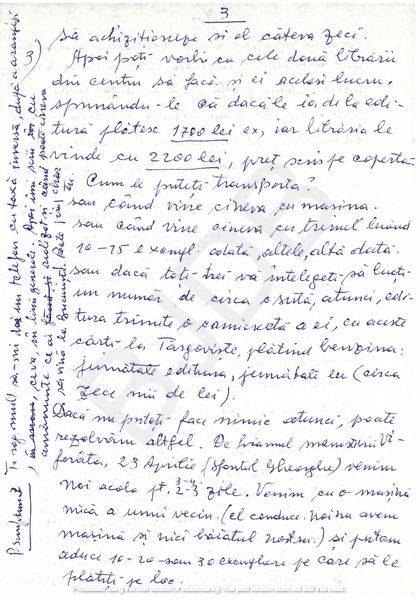 3
să achiziționeze și el câteva zeci.
Apoi poți vorbi cu cele două librării
din centru să facă și ei același lucru,
spunându-le că dacă le ia de la edi-
tură plătesc 1700 lei ex, iar librăria le
vinde cu 2200 lei, preț scris pe copertă.
Cum le puteți transporta?
sau când vine cineva cu mașina.
sau când vine cineva cu trenul luând
10-15 exempl. odată, altele, altă dată.
sau dacă toți trei vă înțelegeți să luați
un număr de circa o sută, atunci, edi-
tura trimite o camionetă a ei, cu aceste
cărți la Târgoviște, plătind benzina:
jumătate editura, jumătate eu (circa
zece mii de lei).
Dacă nu puteți face nimic atunci, poate
rezolvăm altfel. De hramul mănăstirii Vi-
forâta, 23 Aprilie (Sfântul Gheorghe) venim
noi acolo pt. 2-3 zile. Venim cu o mașină
3-4
mică a unui vecin. (el conduce. Noi nu avem
mașină și nici băiatul nostru.) și putem
aduce 10-20 sau 30 exemplare pe care să le
plătiți pe loc.
Te rog mult să-mi dai un telefon cu taxă inversă, după ce aranjezi
ceva, în linii generale. Apoi îmi scrii tot cu
amănunte ce ai
să vină la București.